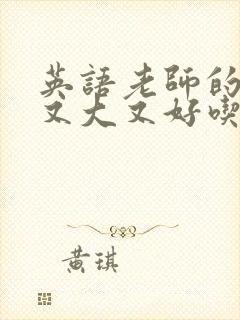 英語老師的
又大又好喫
黄琪